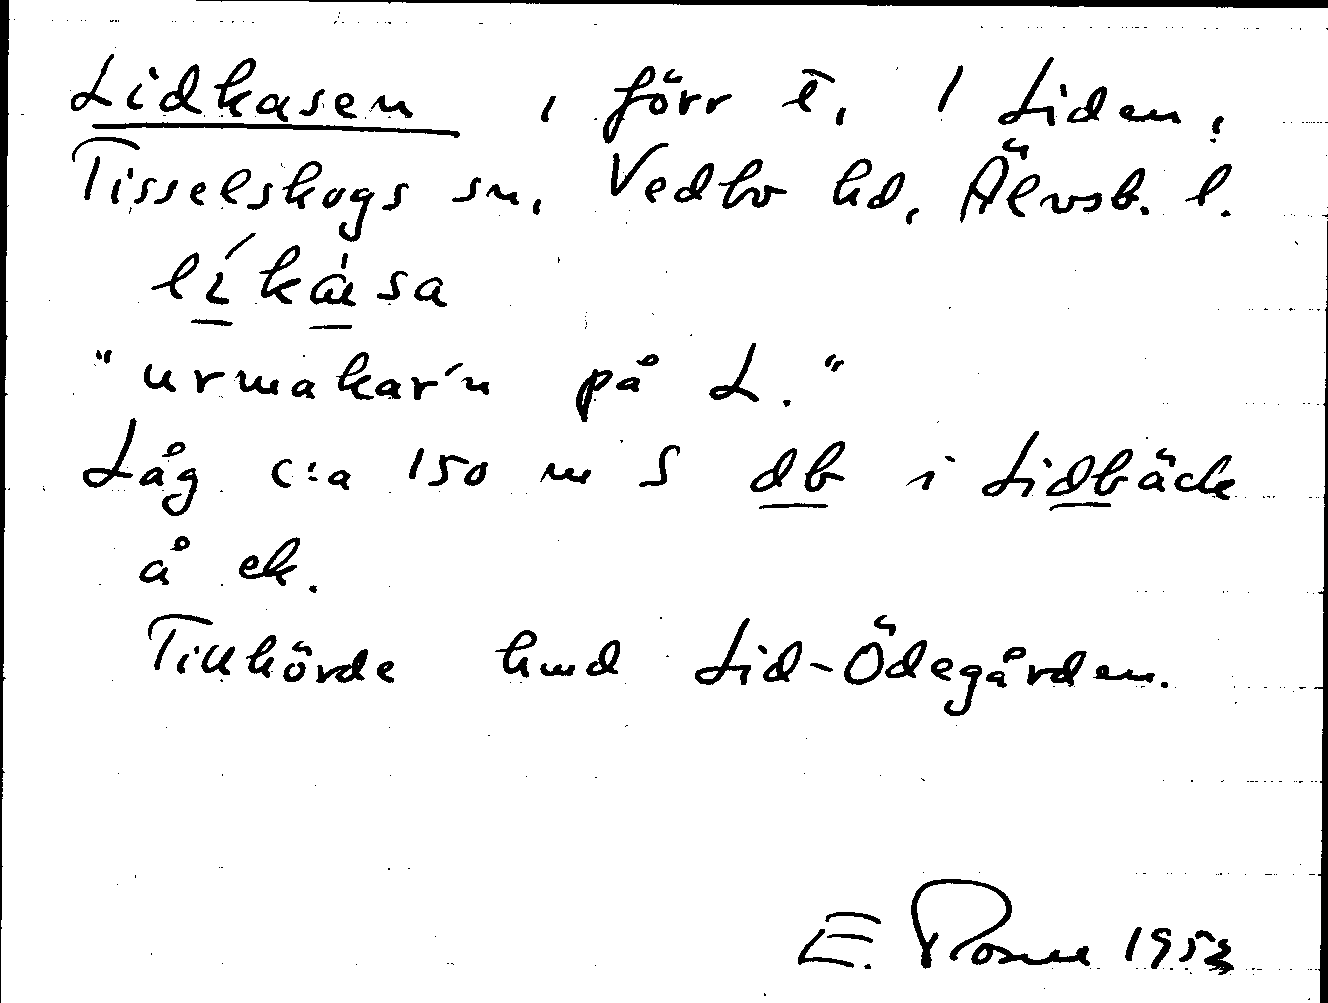 Lidkasen, förr t, 1 Liden,
Tisselskogs sn, Vedbo hd, Älvsb. l.
líkàsa
"urmakar'n på L."
Låg c:a 150 m S db i Lidbäck
å ek.
Tillhörde hmd Lid-Ödegården.
E. 1953